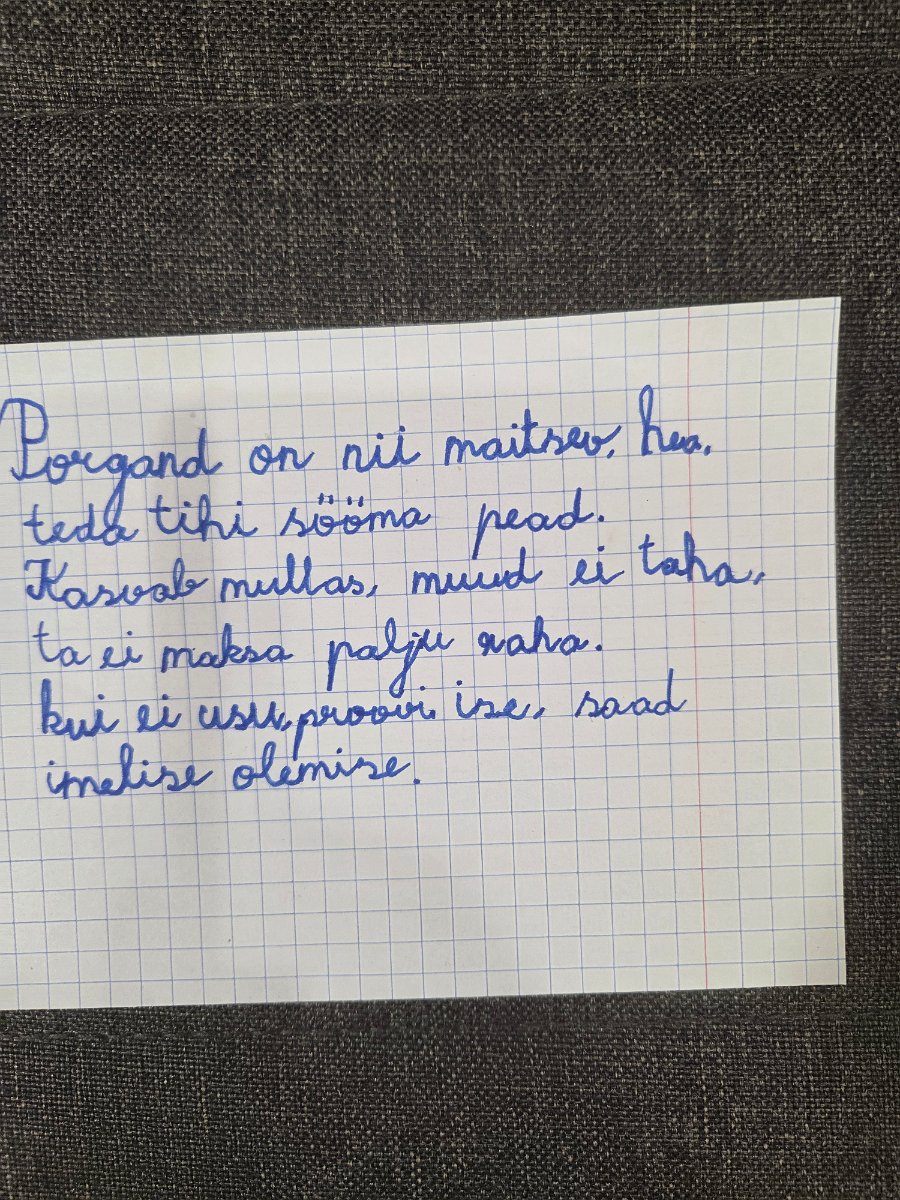 Porgand on nii maitsev, hea,
teda tihi sööma pead.
Kasvab mullas, muud ei taha,
ta ei maksa palju raha.
kui ei usu, proovi ise, saad
imelise olemise.